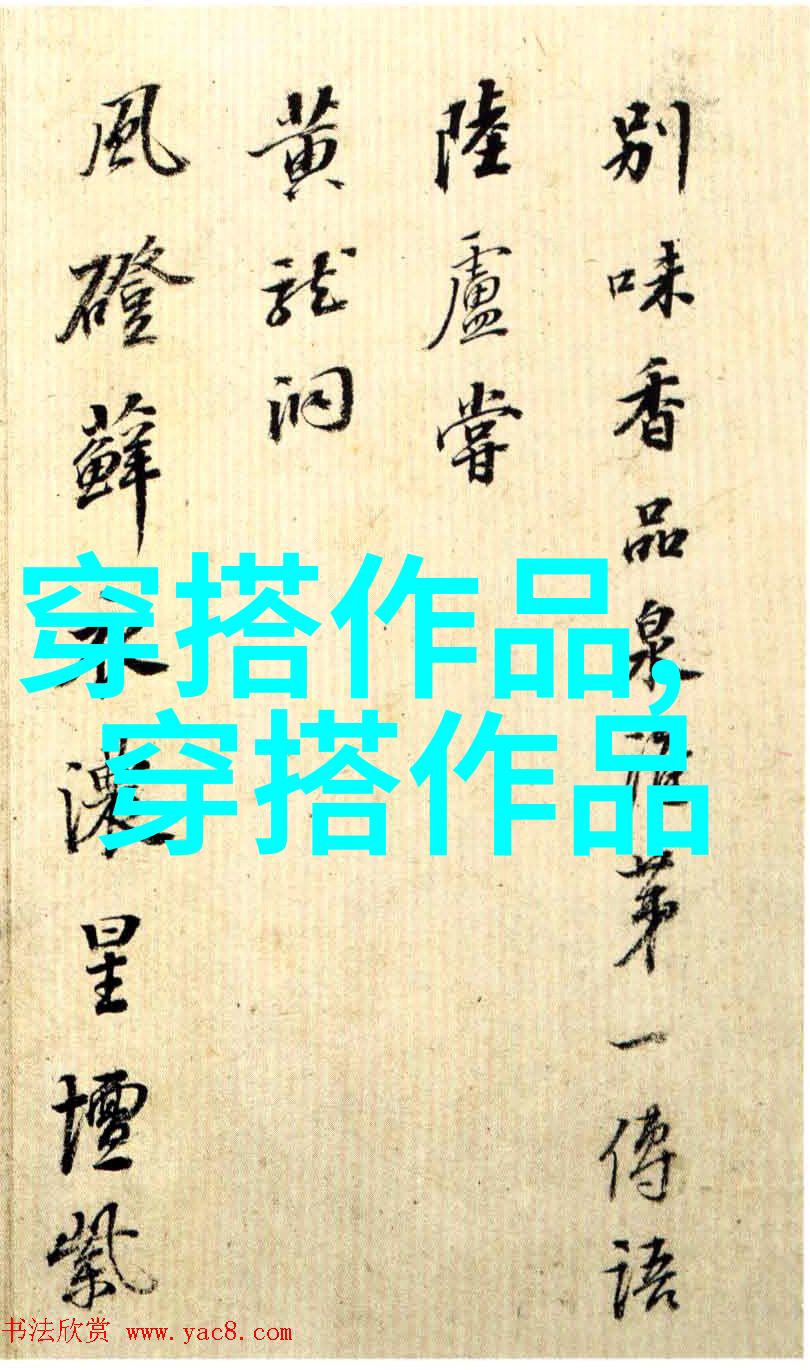 別味香品泉第一傳語
陸廬嘗
黃龍洞
風磴蘚濃星壇紫
穿搭作品,
穿搭作品
书法欣赏 www.yac8.com